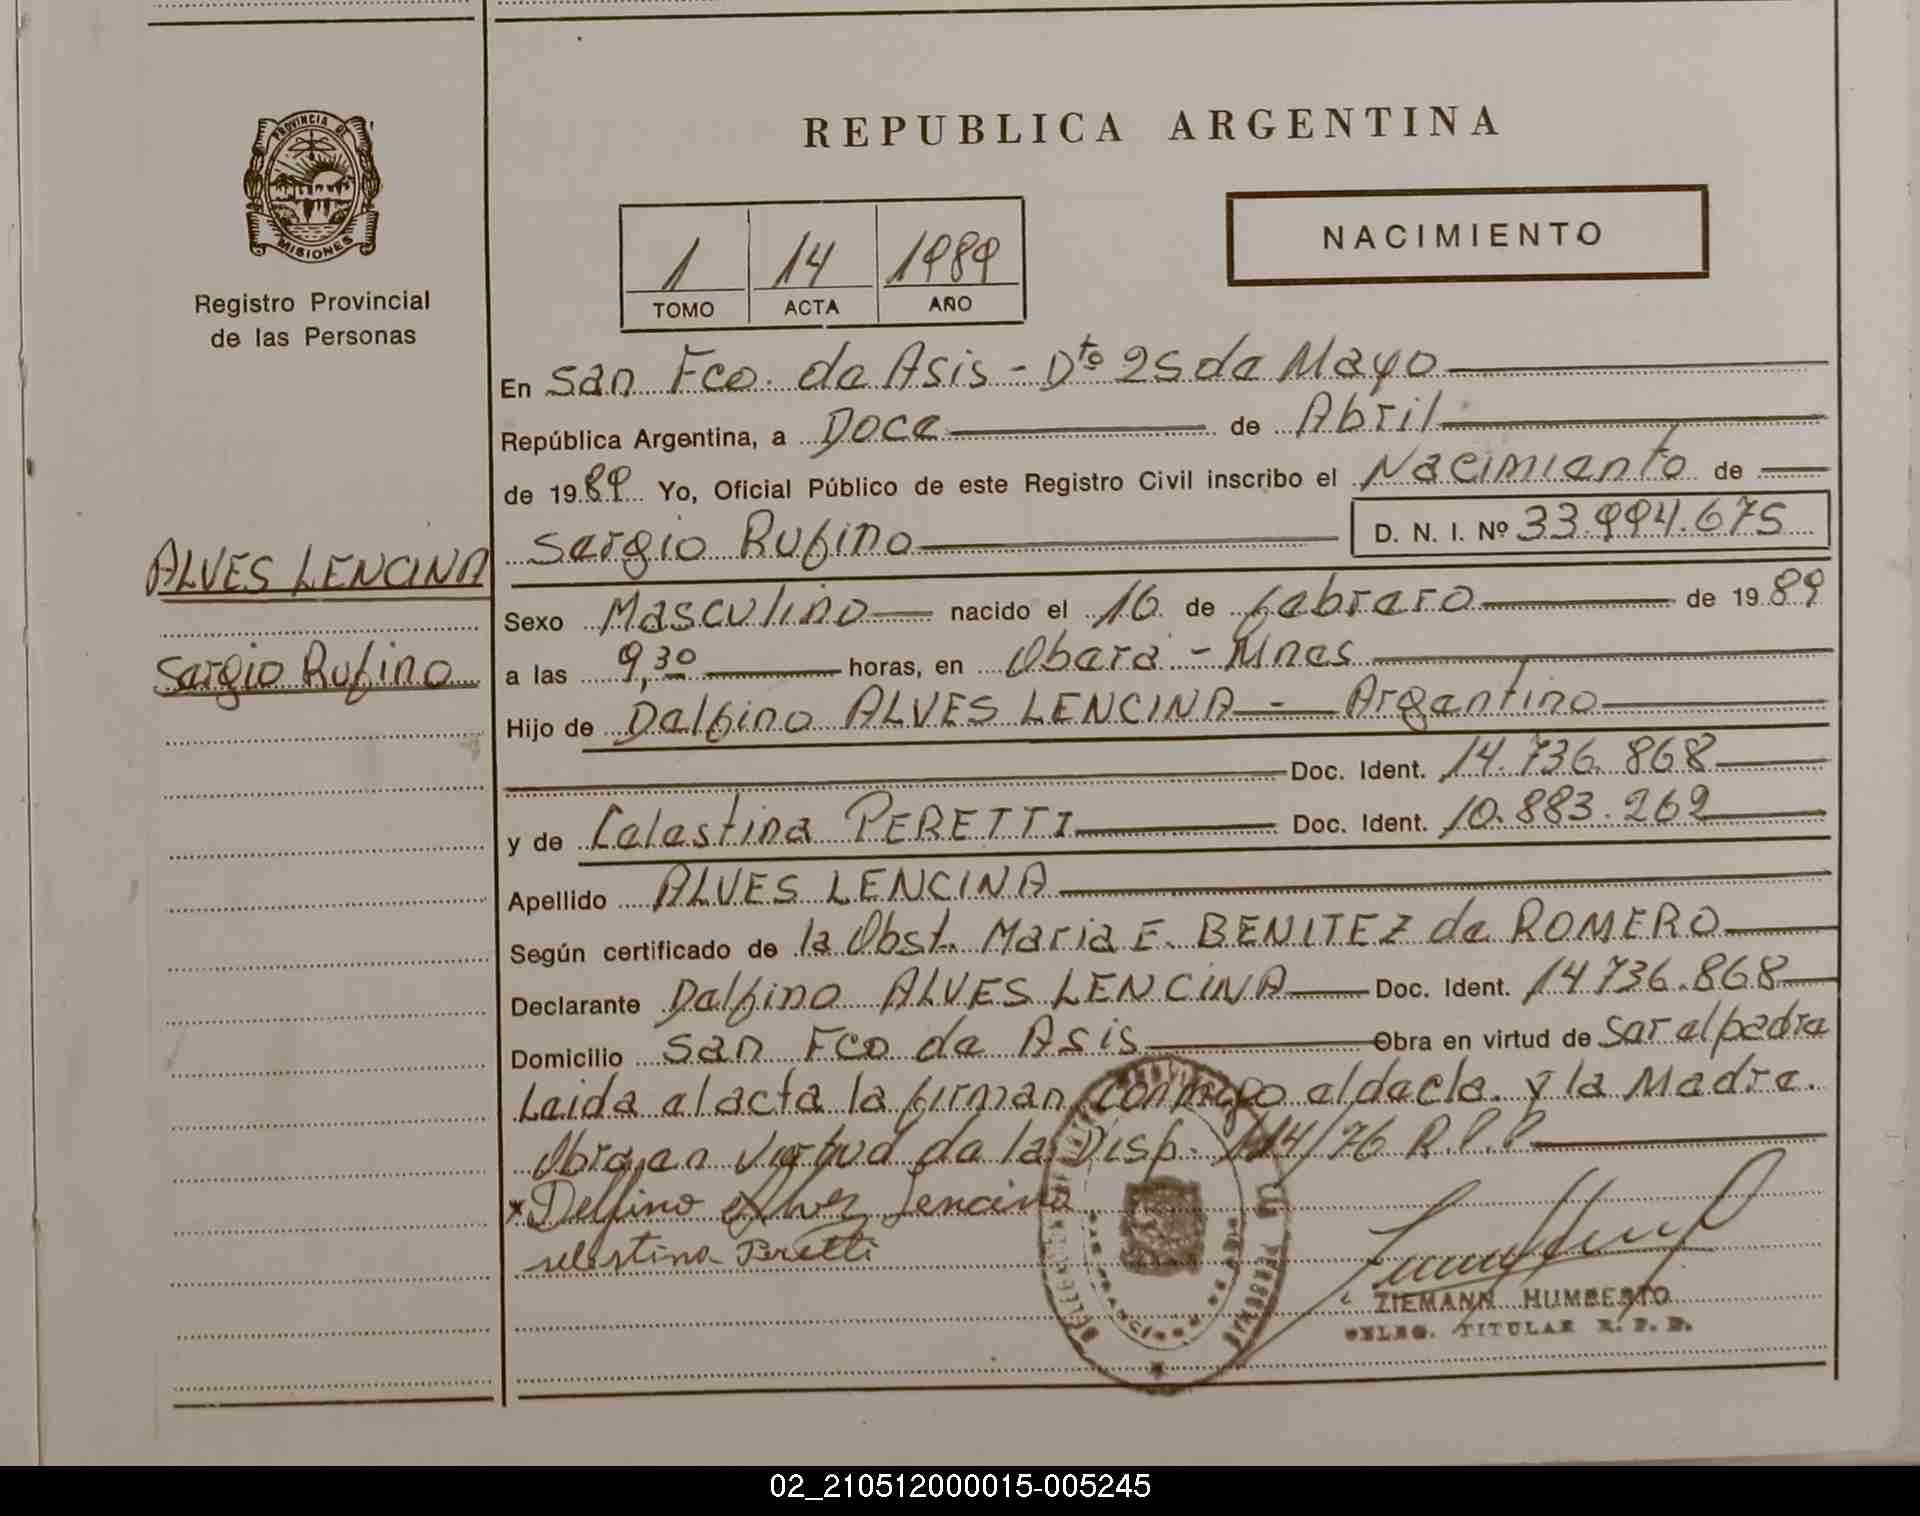 PROVINCIA DE
MISIONES
Registro Provincial
de las Personas
ALVES LENCINA
Sergio Rufino
REPUBLICA ARGENTINA
1 14 1989
TOMO ACTA AÑO
NACIMIENTO
En San Fco. de Asis - Dto 25 de Mayo
República Argentina, a Doce de Abril
de 1989 Yo, Oficial Público de este Registro Civil inscribo el Nacimiento de
Sergio Rufino D. N. I. Nº 33.994.675
Sexo Masculino nacido el 16 de febrero de 1989
a las 9,30 horas, en Oberá - Mnes
Hijo de Delfino ALVES LENCINA - Argentino
Doc. Ident. 14.736.868
y de Celestina PERETTI Doc. Ident. 10.883.262
Apellido ALVES LENCINA
Según certificado de la Obst. Maria E. BENITEZ de ROMERO
Declarante Delfino ALVES LENCINA Doc. Ident. 14736.868
Domicilio San Fco de Asis Obra en virtud de ser el padre
Leida el acta la firman conmigo el decla. y la Madre.
Obra en virtud de la Disp. 114/76 R.P.P
x Delfino Alvez Lencina
selestina Peretti
ZIEMANN HUMBERTO
DELEG. TITULAR R. P. P.
02_210512000015-005245